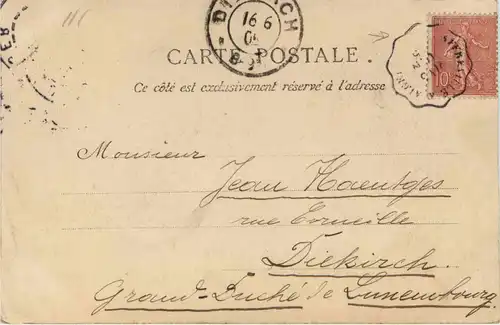 DIEKIRCH
16 6
CARTE POSTALE.
Ce côté est exclusivement réservé à l'adresse
10
Monsieur
Jean Haentges
rue Corneille
Diekirch.
Grand-Duché de Luxembourg.